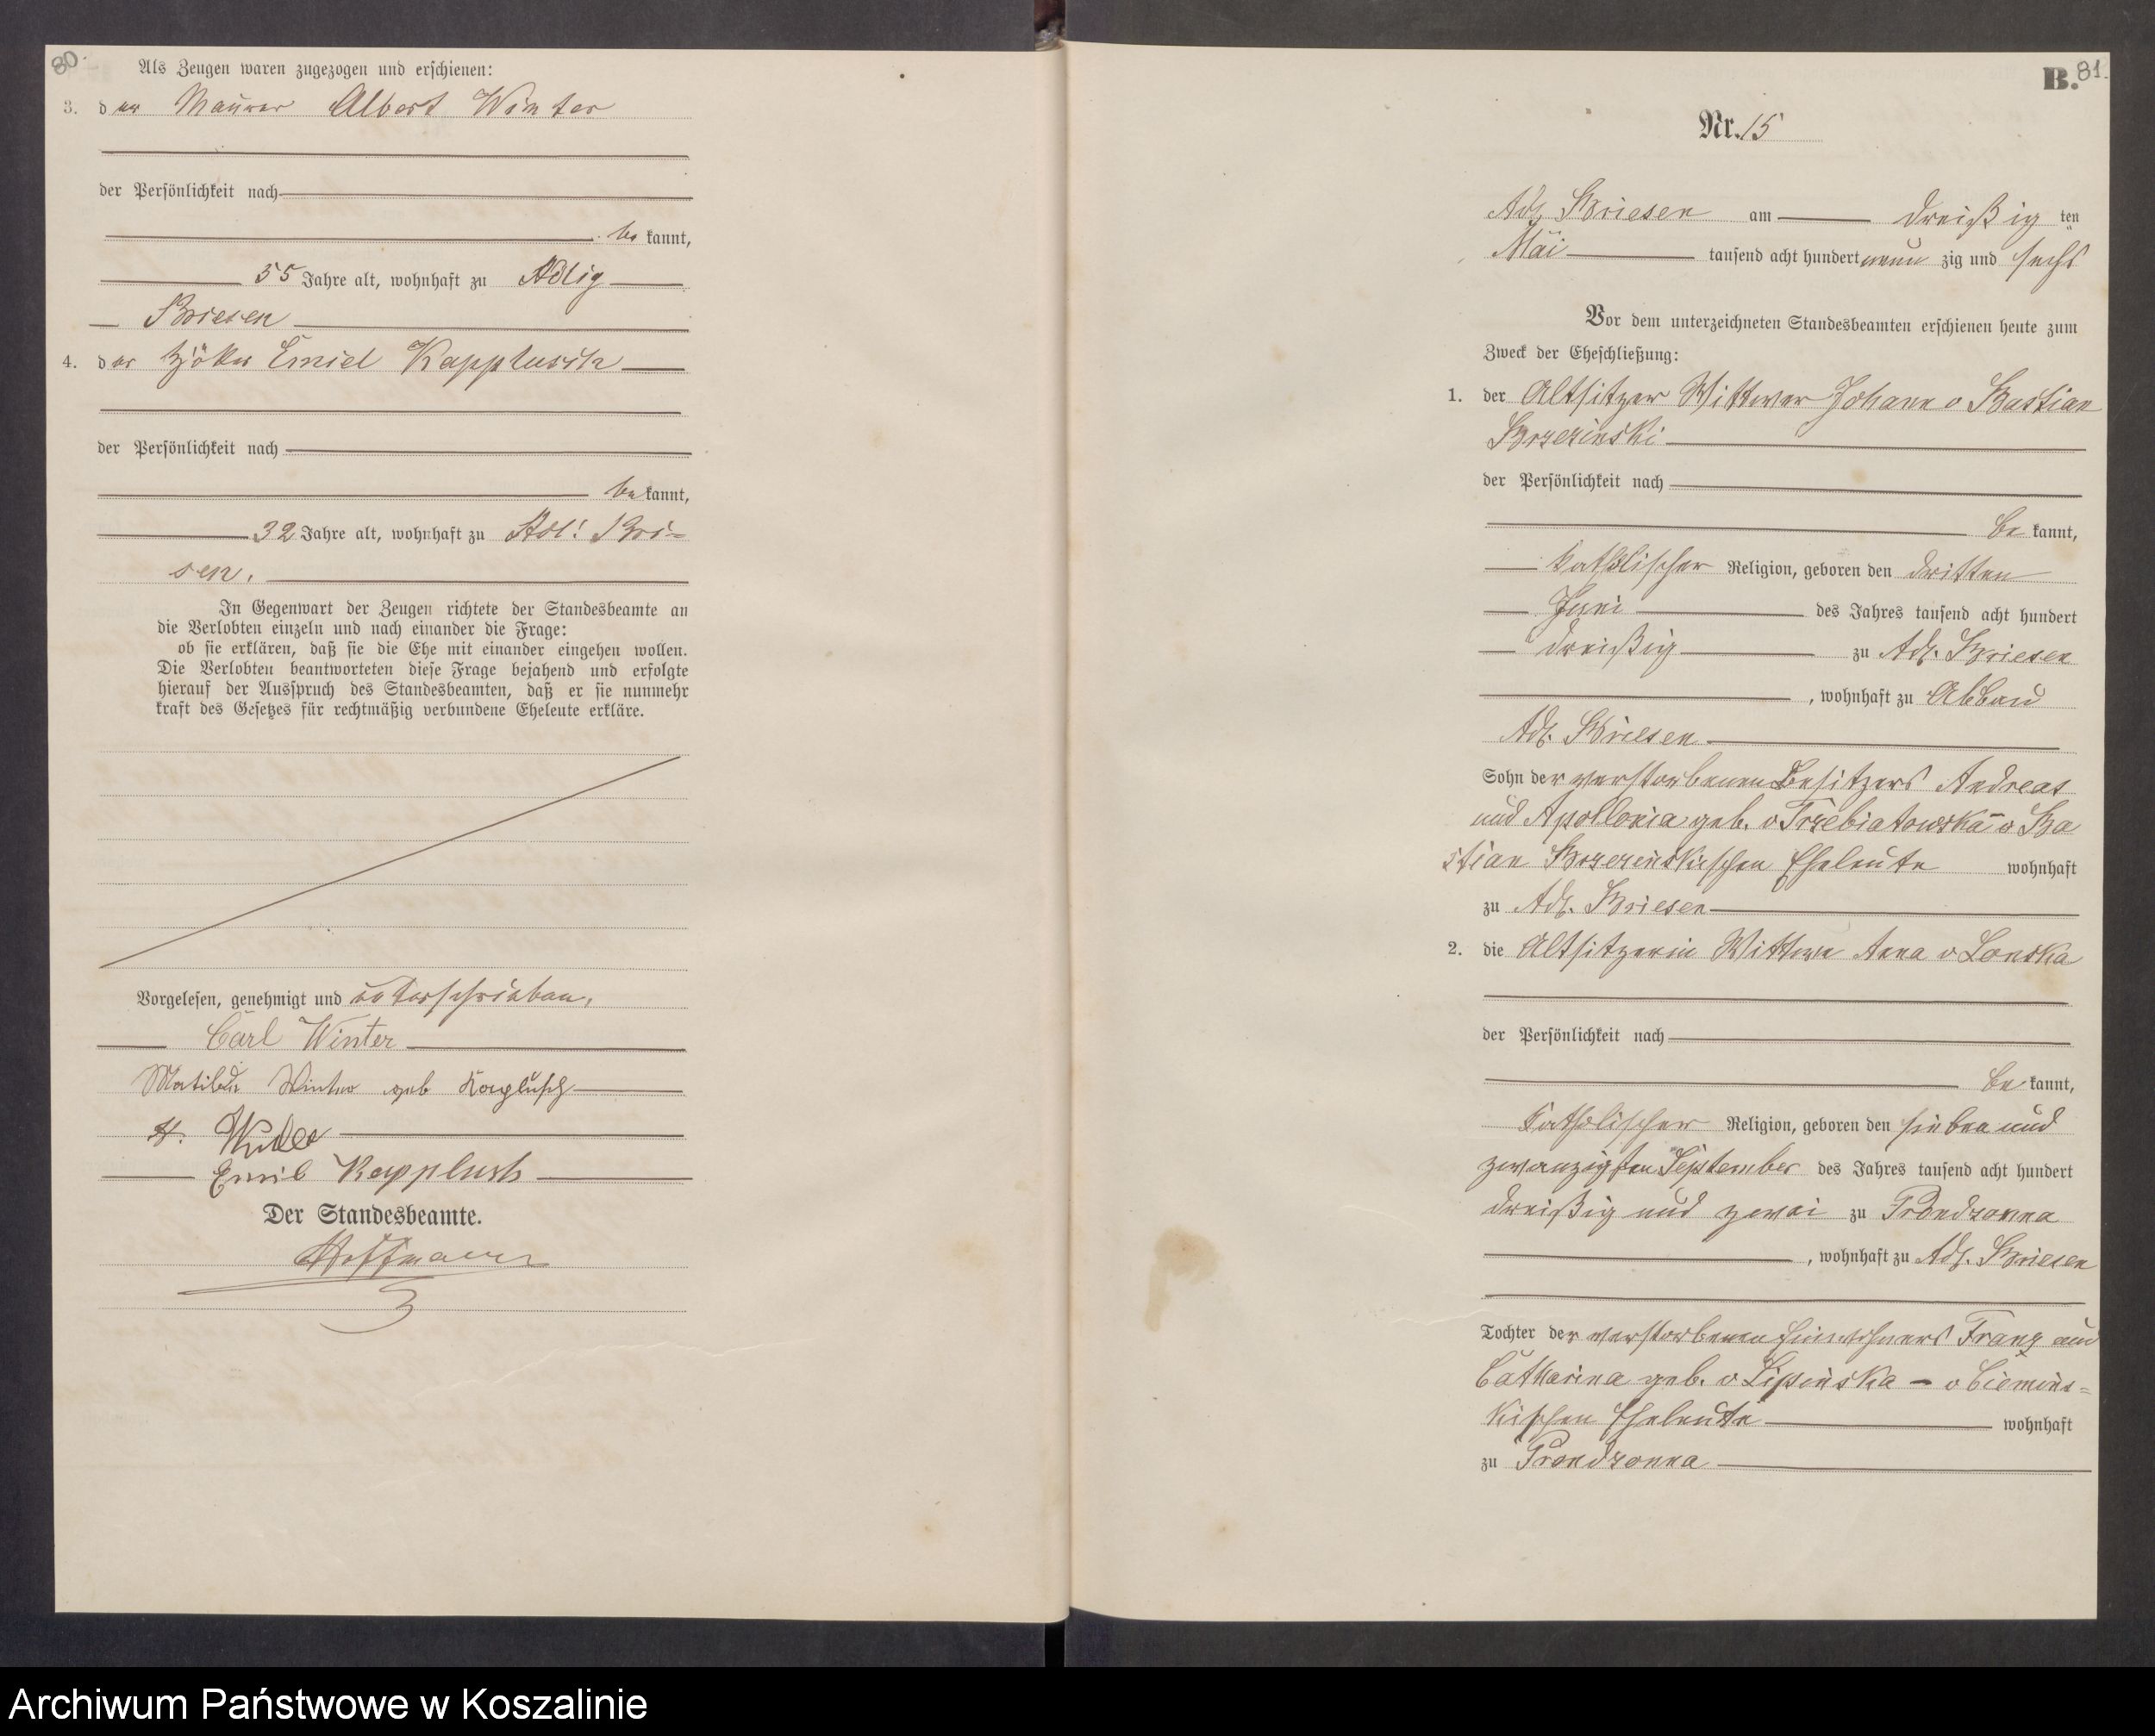 80.
Als Zeugen waren zugezogen und erschienen:
3. der Maurer Albert Winter
der Persönlichkeit nach
bekannt,
55 Jahre alt, wohnhaft zu Adlig
Briesen
4. der Emiel Kapplusch
der Persönlichkeit nach
bekannt,
32 Jahre alt, wohnhaft zu Adl: Brie=
sen.
In Gegenwart der Zeugen richtete der Standesbeamte an
die Verlobten einzeln und nach einander die Frage:
ob sie erklären, daß sie die Ehe mit einander eingehen wollen.
Die Verlobten beantworteten diese Frage bejahend und erfolgte
hierauf der Ausspruch des Standesbeamten, daß er sie nunmehr
kraft des Gesetzes für rechtmäßig verbundene Eheleute erkläre.
Vorgelesen, genehmigt und unterschrieben.
Carl Winter
Matilde Winter geb
A. Winter
Emil Kapplusch
Der Standesbeamte.
Hoffmann
B. 81.
Nr. 15
Adl. Briesen am dreißig ten
Mai tausend acht hundert neun zig und sechs
Vor dem unterzeichneten Standesbeamten erschienen heute zum
Zweck der Eheschließung:
1. der Altsitzer Wittwer Johann v Bastian
Brzezinski
der Persönlichkeit nach
be kannt,
katholischer Religion, geboren den dritten
Juni des Jahres tausend acht hundert
dreißig zu Adl. Briesen
, wohnhaft zu Abbau
Adl. Briesen
Sohn der verstorbenen Besitzers Andreas
und Apollonia geb. v Trzebiatowska - v Ba
stian Brzezinskischen Eheleute wohnhaft
zu Adl. Briesen
2. die Altsitzerin Wittwe Anna v Lonska
der Persönlichkeit nach
be kannt,
katholischer Religion, geboren den sieben und
zwanzigsten September des Jahres tausend acht hundert
dreißig und zwei zu Prondzonna
, wohnhaft zu Adl. Briesen
Tochter der verstorbenen Einwohners Franz und
Catharina geb. v Lipinska - v Ciemins=
kischen Eheleute wohnhaft
zu Prondzonna